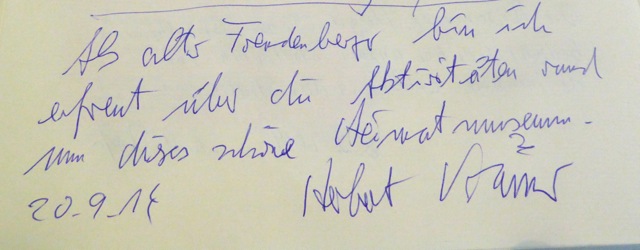 Als alter Freudenberger bin ich
erfreut über die Aktivitäten rund
um dieses schöne Heimatmuseum.
20.9.14 Herbert